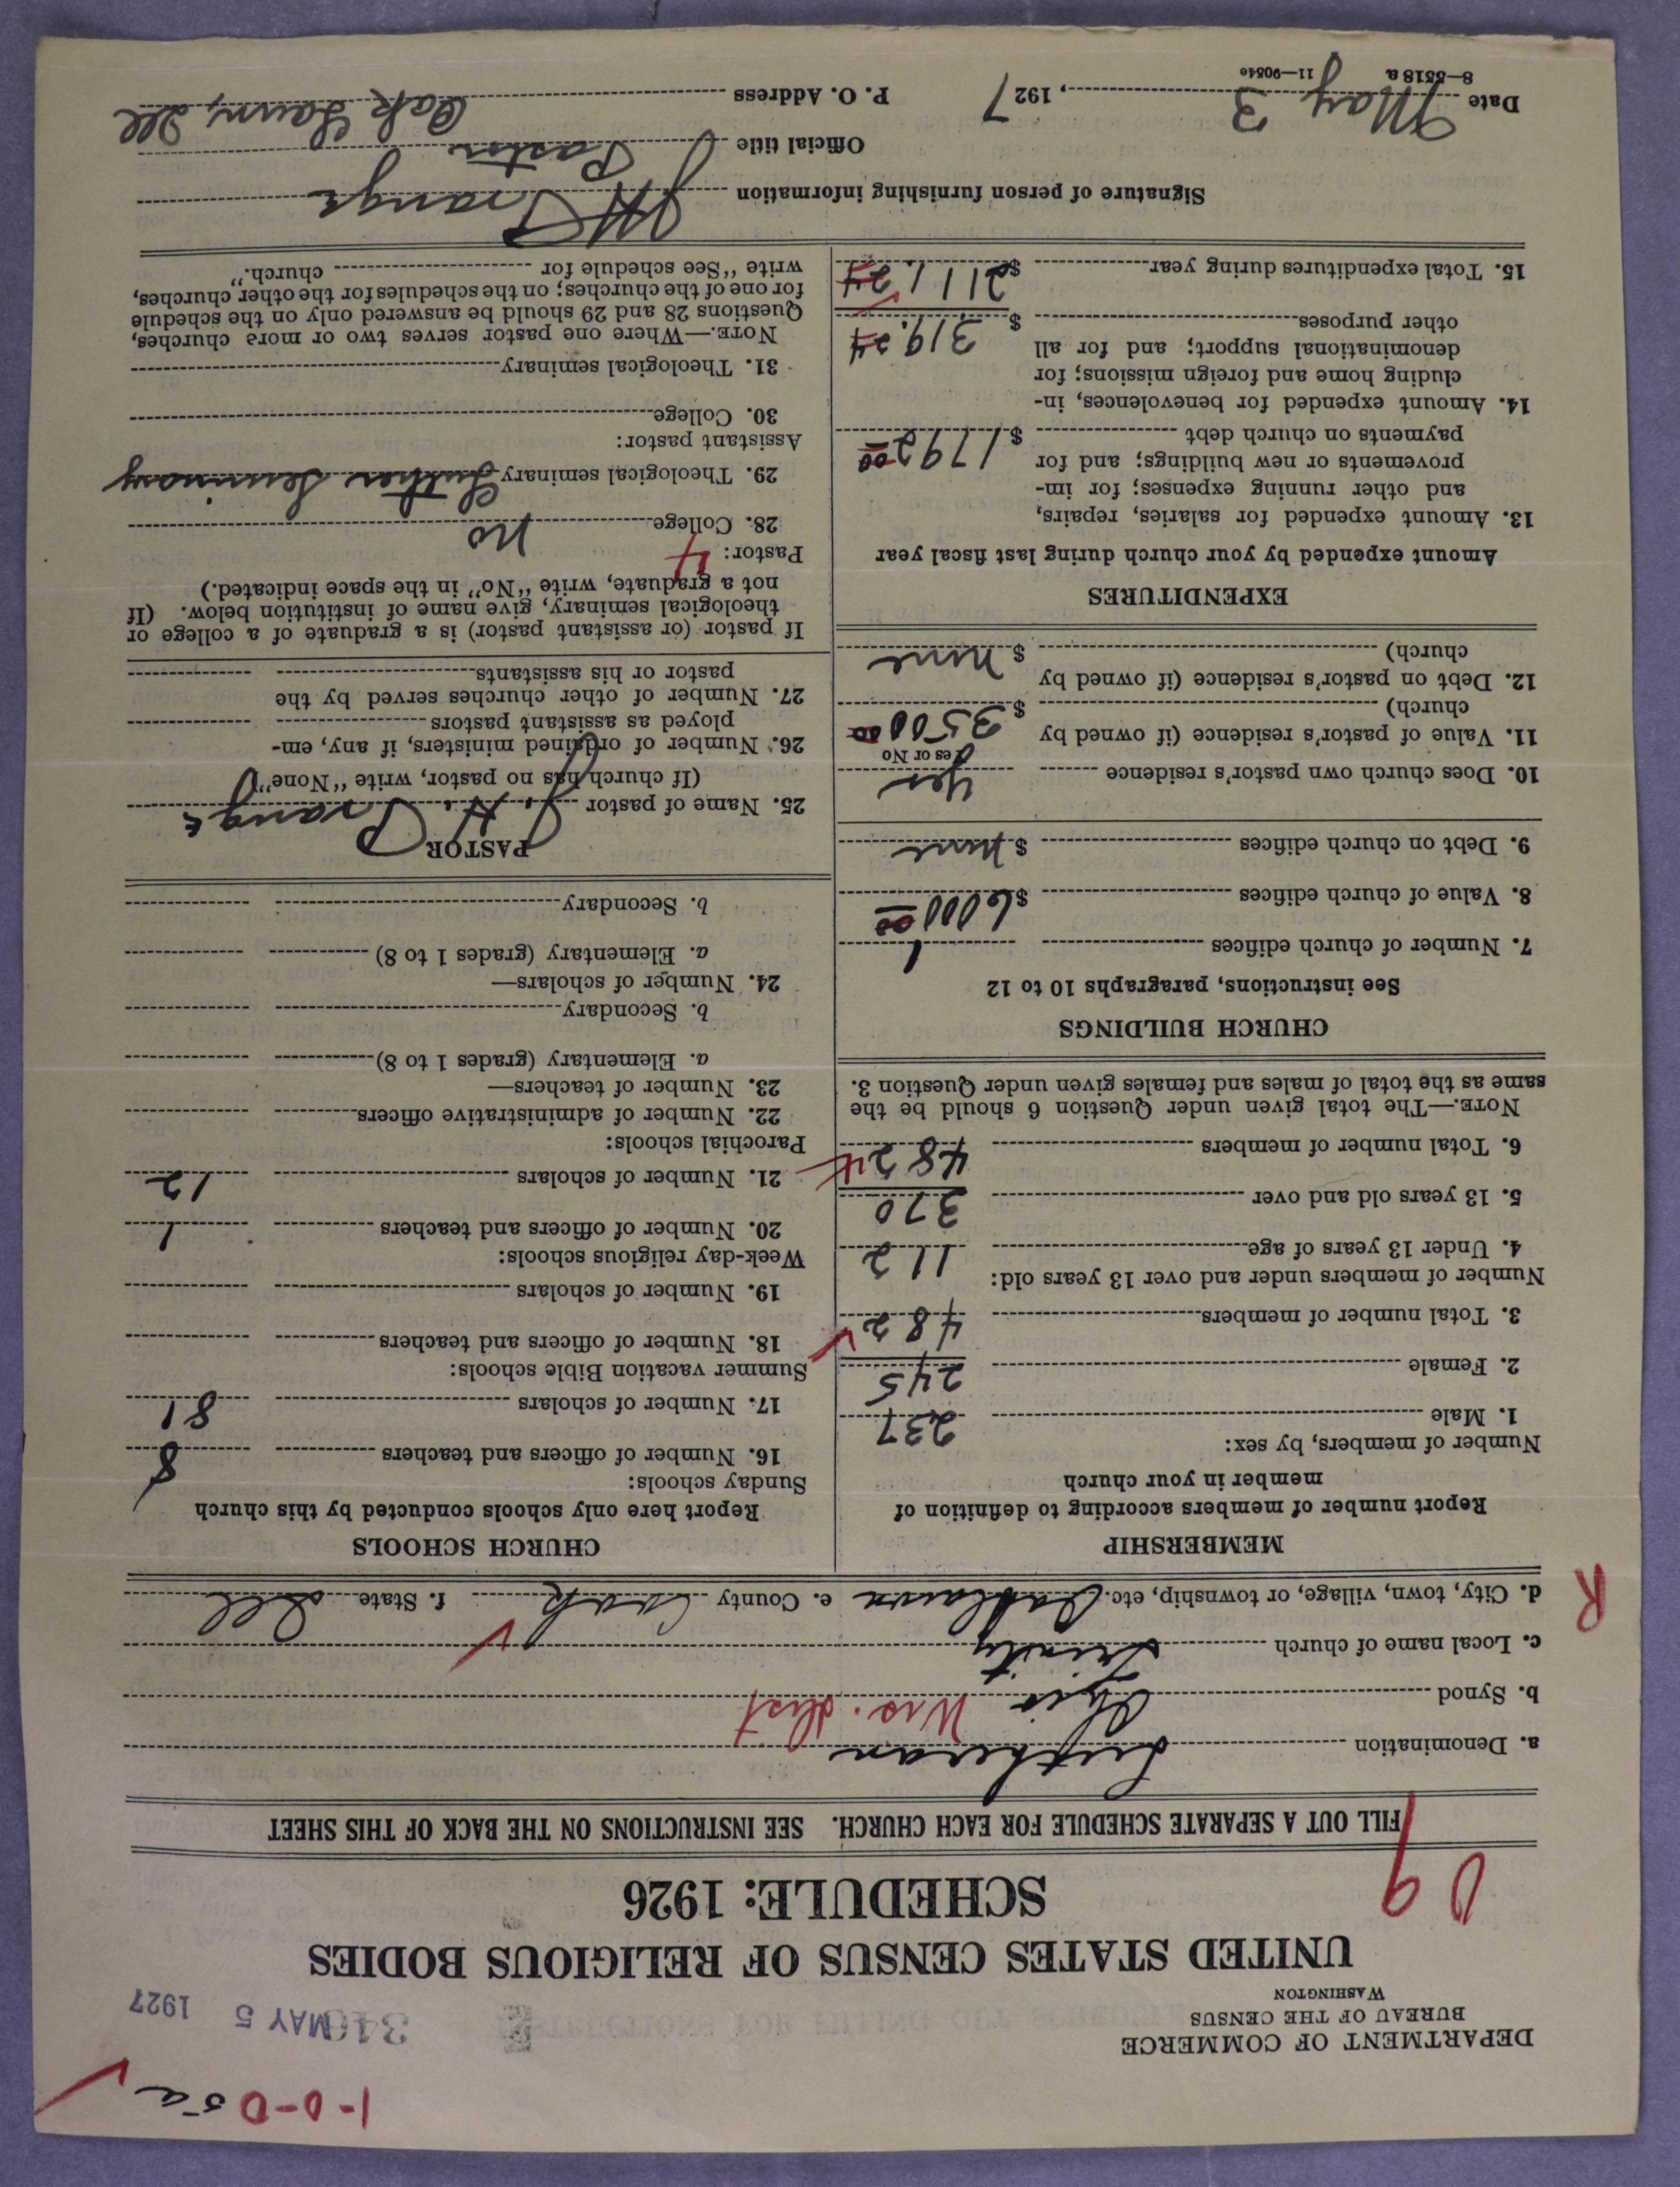 1-0-0 5a
DEPARTMENT OF COMMERCE
BUREAU OF THE CENSUS
WASHINGTON
MAY 5 1927
UNITED STATES CENSUS OF RELIGIOUS BODIES
SCHEDULE: 1926
09
FILL OUT A SEPARATE SCHEDULE FOR EACH CHURCH. SEE INSTRUCTIONS ON THE BACK OF THIS SHEET
a. Denomination Lutheran
b. Synod Ohio Wis. dist
c. Local name of church Trinity
R
d. City, town, village, or township, etc. Oaklawn e. County Cook f. State Ill
MEMBERSHIP
Report number of members according to definition of
member in your church
Number of members, by sex:
1. Male 237
2. Female 245
3. Total number of members 482
Number of members under and over 13 years old:
4. Under 13 years of age 112
5. 13 years old and over 370
6. Total number of members 482
NOTE.—The total given under Question 6 should be the
same as the total of males and females given under Question 3.
CHURCH BUILDINGS
See instructions, paragraphs 10 to 12
7. Number of church edifices 1
8. Value of church edifices $6000 00
9. Debt on church edifices $ None
10. Does church own pastor's residence Yes
Yes or No
11. Value of pastor's residence (if owned by
church) $ 3500 00
12. Debt on pastor's residence (if owned by
church) $ None
EXPENDITURES
Amount expended by your church during last fiscal year
13. Amount expended for salaries, repairs,
and other running expenses; for im-
provements or new buildings; and for
payments on church debt $ 1792 00
14. Amount expended for benevolences, in-
cluding home and foreign missions; for
denominational support; and for all
other purposes $ 319.24
15. Total expenditures during year $ 2111.24
CHURCH SCHOOLS
Report here only schools conducted by this church
Sunday schools:
16. Number of officers and teachers 8
17. Number of scholars 81
Summer vacation Bible schools:
18. Number of officers and teachers
19. Number of scholars
Week-day religious schools:
20. Number of officers and teachers 1
21. Number of scholars 12
Parochial schools:
22. Number of administrative officers
23. Number of teachers—
a. Elementary (grades 1 to 8)
b. Secondary
24. Number of scholars—
a. Elementary (grades 1 to 8)
b. Secondary
PASTOR
25. Name of pastor J. H. Prange
(If church has no pastor, write "None")
26. Number of ordained ministers, if any, em-
ployed as assistant pastors
27. Number of other churches served by the
pastor or his assistants
If pastor (or assistant pastor) is a graduate of a college or
theological seminary, give name of institution below. (If
not a graduate, write "No" in the space indicated.)
Pastor: 4
28. College no
29. Theological seminary Luther Seminary
Assistant pastor:
30. College
31. Theological seminary
NOTE.—Where one pastor serves two or more churches,
Questions 28 and 29 should be answered only on the schedule
for one of the churches; on the schedules for the other churches,
write "See schedule for church."
Signature of person furnishing information J H Prange
Official title Pastor
Date May 3, 1927 P. O. Address Oak Lawn, Ill
8—5518 a 11—9054e